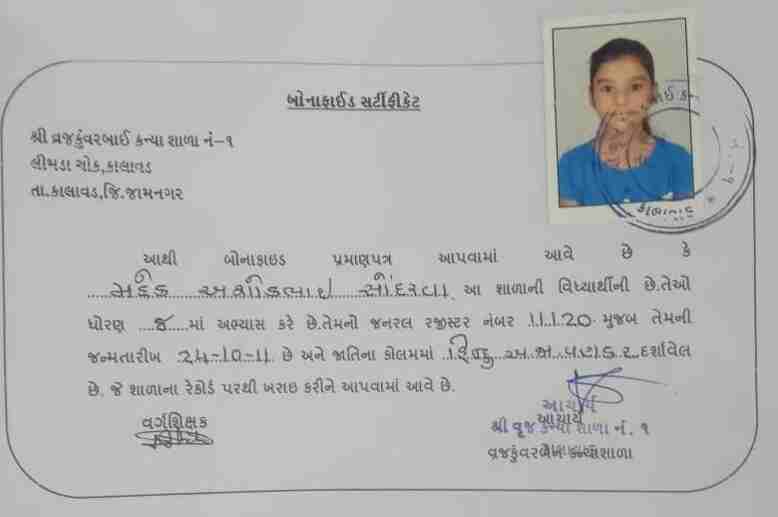 બોનાફાઈડ સર્ટીફીકેટ
શ્રી વ્રજકુંવરબાઈ કન્યા શાળા નં-૧
લીમડા ચોક,કાલાવડ
તા.કાલાવડ,જિ.જામનગર
કાલાવડ
આથી બોનાફાઇડ પ્રમાણપત્ર આપવામાં આવે છે કે
મહેક અશોકભાઇ સોંદરવા આ શાળાની વિધ્યાર્થીની છે.તેઓ
ધોરણ ૪ માં અભ્યાસ કરે છે.તેમનો જનરલ રજીસ્ટર નંબર 11120 મુજબ તેમની
જન્મતારીખ 24-10-11 છે અને જાતિના કોલમમાં હિન્દુ અ.જા વણકર દર્શાવેલ
છે. જે શાળાના રેકોર્ડ પરથી ખરાઇ કરીને આપવામાં આવે છે.
વર્ગશિક્ષક
આચાર્ય
આચાર્ય
શ્રી વૃજ કન્યા શાળા નં. ૧
વ્રજકુંવરબેન કન્યાશાળા